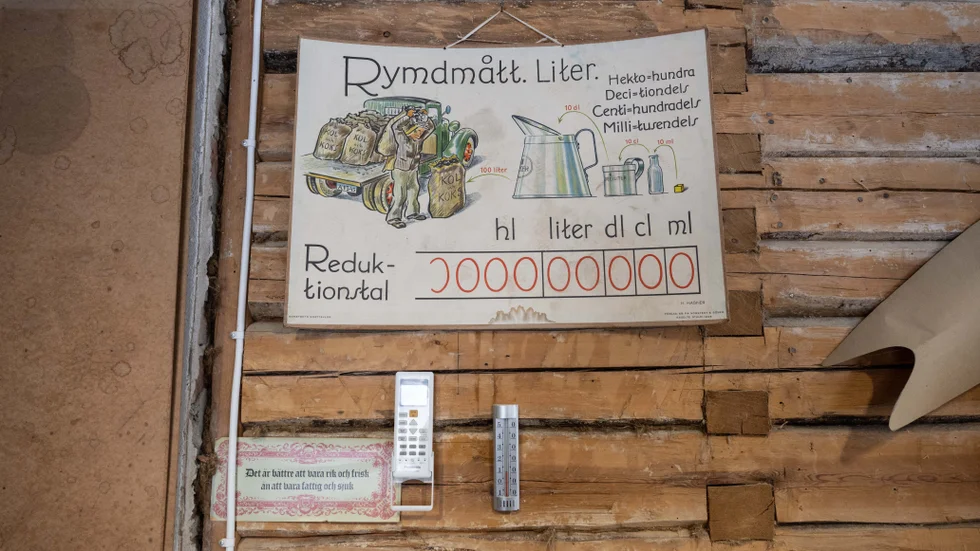 Rymdmått. Liter.
Hekto=hundra
Deci=tiondels
Centi=hundradels
Milli=tusendels
KOL
KOKS
KOL
KOKS
KOL
KOKS
100 liter
10 dl
10 cl
10 ml
hl liter dl cl ml
Reduk-
tionstal
Det är bättre att vara rik och frisk
än att vara fattig och sjuk